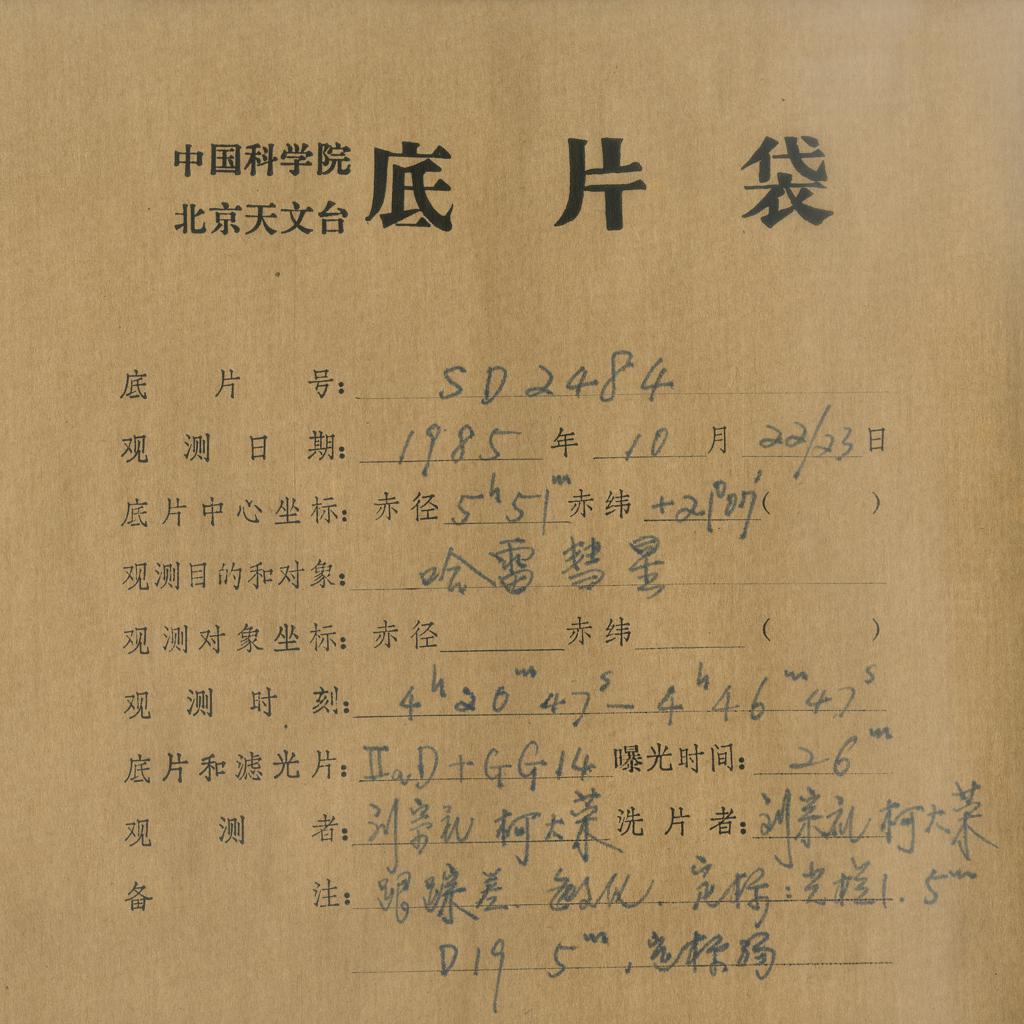 中国科学院
北京天文台
底片袋
底片号：SD2484
观测日期：1985年10月22/23日
底片中心坐标：赤径5ʰ51ᵐ赤纬+21°07′（　）
观测目的和对象：哈雷彗星
观测对象坐标：赤径　赤纬　（　）
观测时刻：4ʰ20ᵐ47ˢ—4ʰ46ᵐ47ˢ
底片和滤光片：ⅡaD+GG14 曝光时间：26ᵐ
观测者：刘宗礼 柯大荣 洗片者：刘宗礼 柯大荣
备注：跟踪差. 敏仪. 定标：光栏1. 5ᵐ
D19 5ᵐ，定标弱